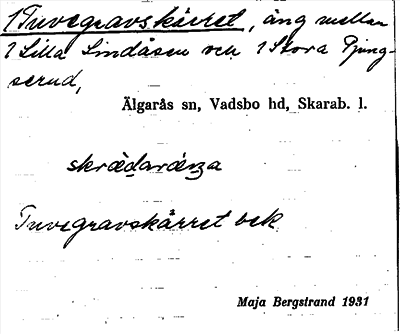 1 Tuvegravskärret, äng mellan
1 Lilla Lindåsen och 1 Stora Ljung-
serud,
Älgarås sn, Vadsbo hd, Skarab. l.
Tuvegravskärret
Maja Bergstrand 1931